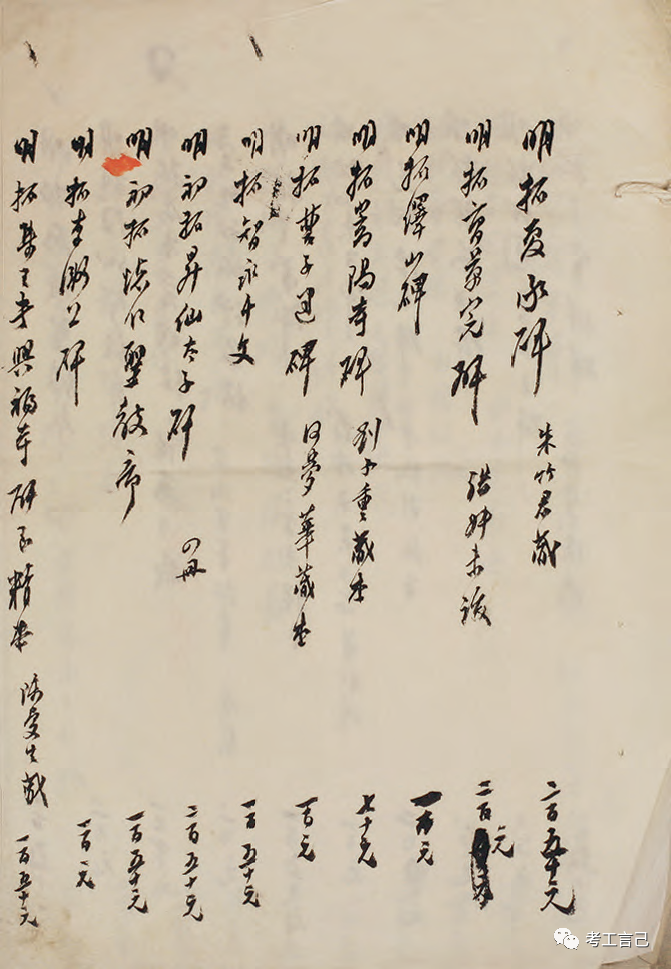 明拓夏承碑 朱竹君藏 二百五十元
明拓曹景完碑 張叔未跋 二百元
明拓繹山碑 一百元
明拓嵩陽寺碑 劉子重藏本 七十元
明拓曹子建碑 何夢華藏本 一百元
明拓智永千文 一百五十元
明初拓昇仙太子碑 四冊 二百五十元
明初拓懷仁聖教序 一百五十元
明拓李 碑 一百元
明拓集王書興福寺碑 精拳 陳受生藏 一百五十元
考工言己